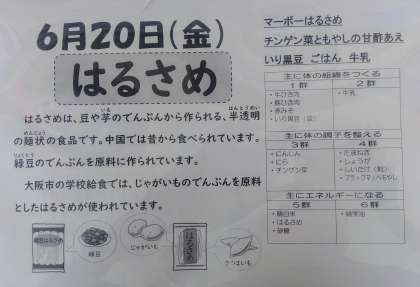 6月20日(金)
はるさめ
はるさめは、豆や芋のでんぷんから作られる、半透明
の麺状の食品です。中国では昔から食べられています。
緑豆のでんぷんを原料に作られています。
大阪市の学校給食では、じゃがいものでんぷんを原料
としたはるさめが使われています。
緑豆はるさめ
緑豆
じゃがいも
はるさめ
さつまいも
マーボーはるさめ
チンゲン菜ともやしの甘酢あえ
いり黒豆 ごはん 牛乳
主に体の組織をつくる
1群 2群
・牛ひき肉 ・牛乳
・豚ひき肉
・赤みそ
・いり黒豆
主に体の調子を整える
3群 4群
・にんじん ・たまねぎ
・にら ・しょうが
・チンゲン菜 ・しいたけ
主にエネルギーになる
5群 6群
・精白米 ・綿実油
・はるさめ
・砂糖